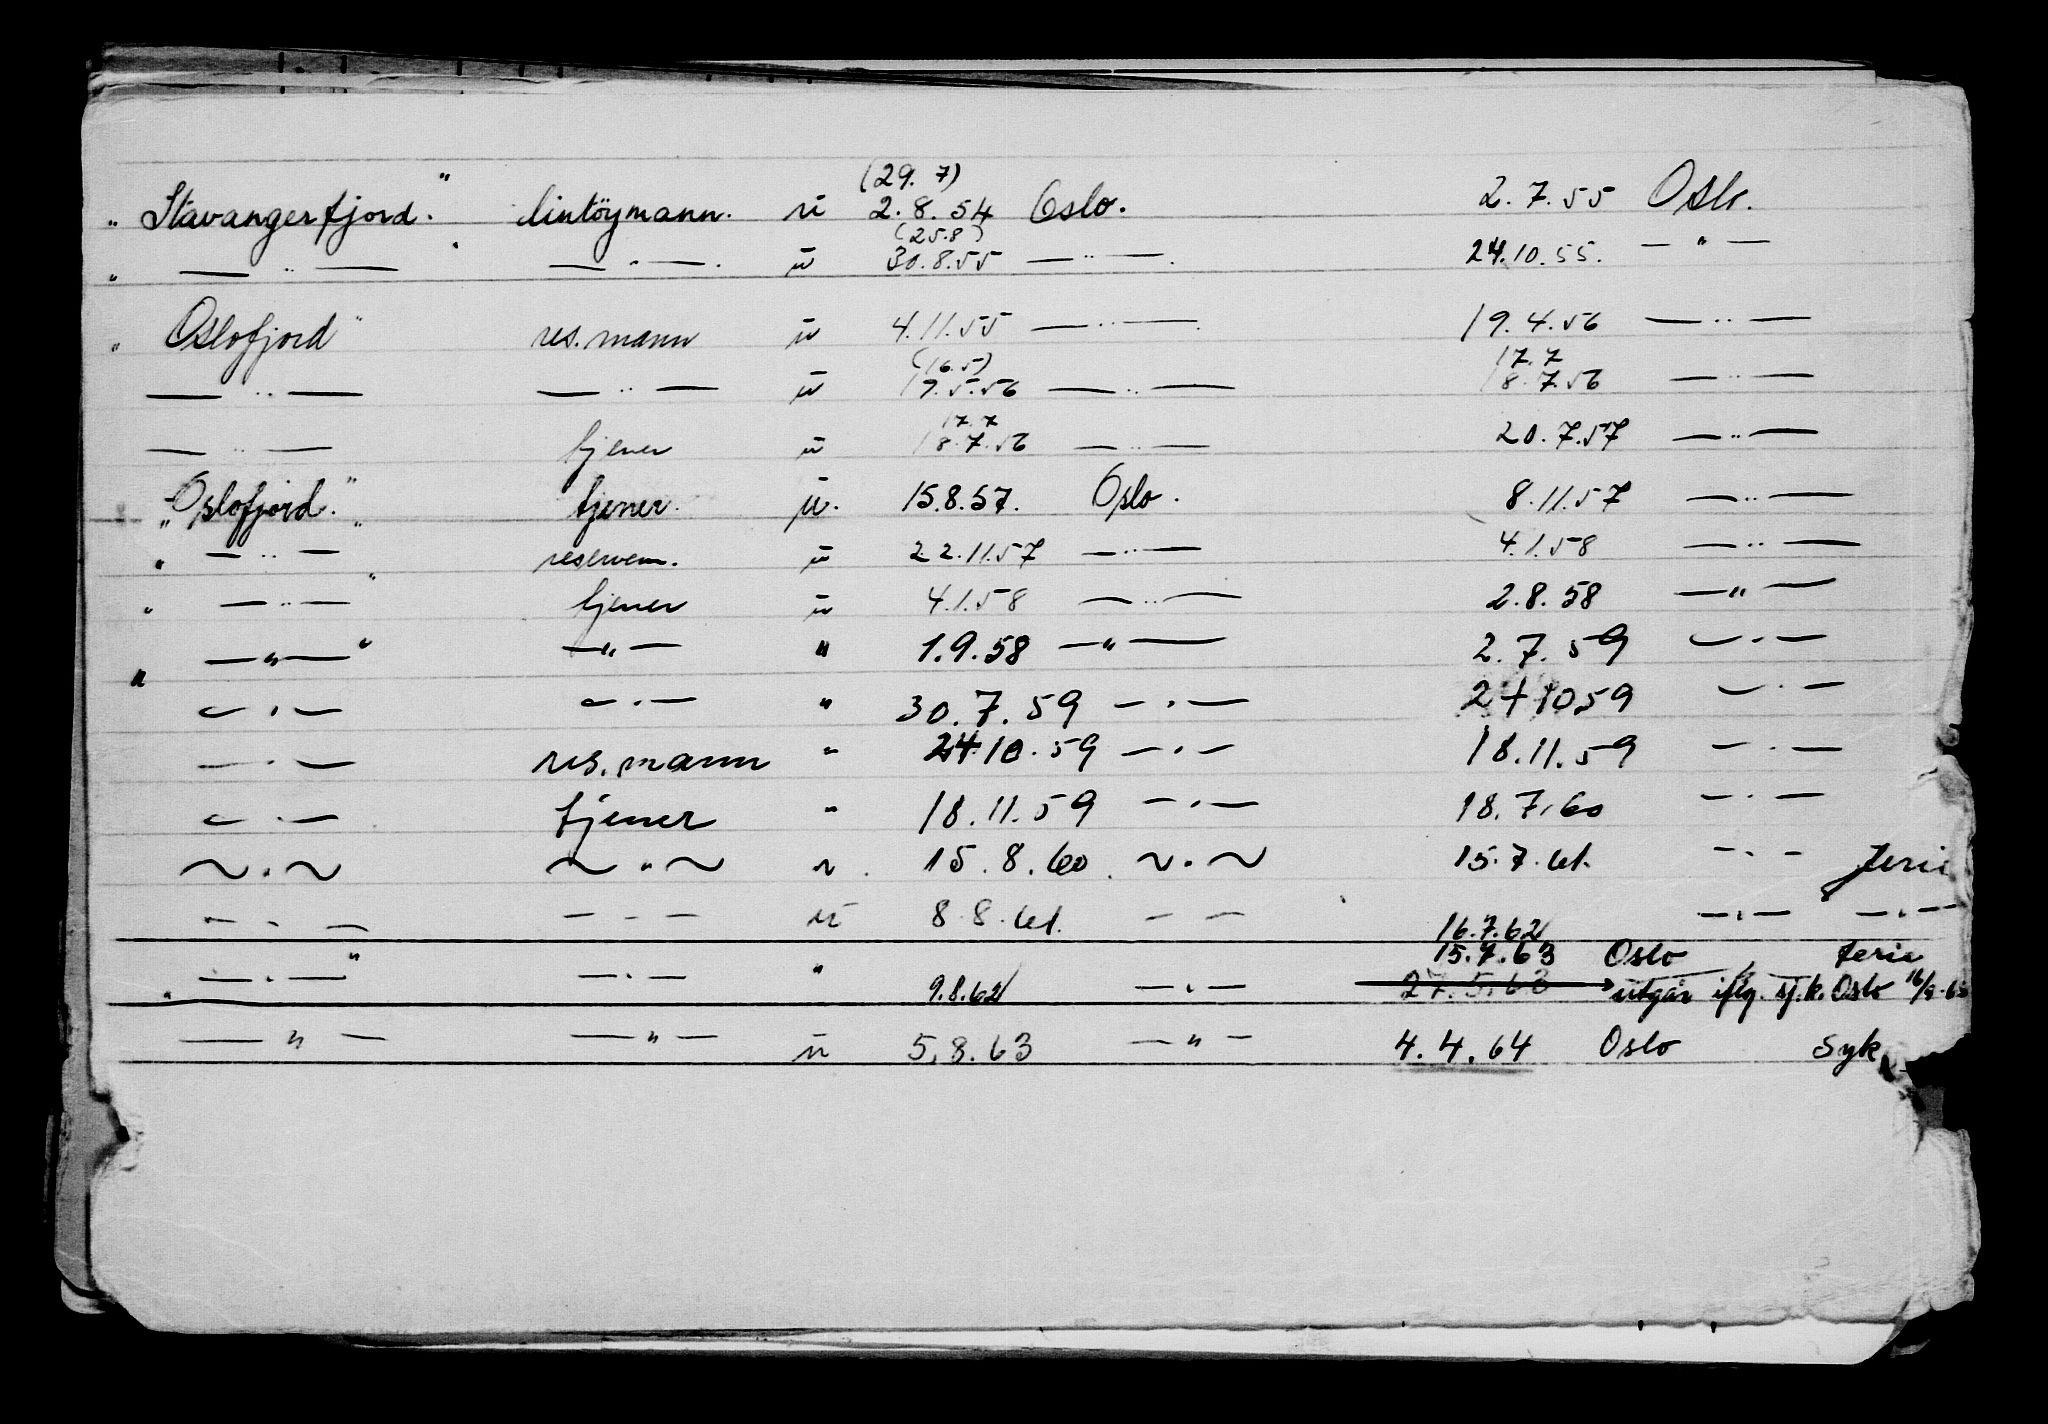 (29. 7)
„ Stavangerfjord." lintöymann. u 2.8.54 Oslo. 2.7.55 Oslo.
(25.8)
„ — " — — " — . u 30.8.55 — " — . 24.10.55. — " —
„ Oslofjord" res.mann u 4.11.55 — " — 19.4.56 — " —
(16.5) 17.7
— " — — " — u 19.5.56 — " — 18.7.56 — " —
17.7
— " — tjener u 18.7.56 — " — 20.7.57 — " —
„Oslofjord." tjener. u. 15.8.57. Oslo. 8.11.57 — " —
„ — " — " reservem. u 22.11.57 — " — 4.1.58 — " —
„ — " — " tjener u 4.1.58 — " — 2.8.58 — " —
„ — " — " — " — " 1.9.58 — " — 2.7.59 — " —
— " — — " — " 30.7.59 — " — 24 10.59 — " —
— " — res.mann " 24.10.59 — " — 18.11.59 — " —
— " — tjener " 18.11.59 — " — 18.7.60 — " —
— " — — " — u. 15.8.60. — " — 15.7.61. — " — ferie
— " — — " — u 8.8.61. — — 16.7.62 — " — — " —
15.7.63 Oslo ferie
„ — " — " — " — " 9.8.62 — " — 27.5.63 utgår iflg. sj.k. Oslo
— " — — " — u 5.8.63 — " — 4.4.64 Oslo Syk